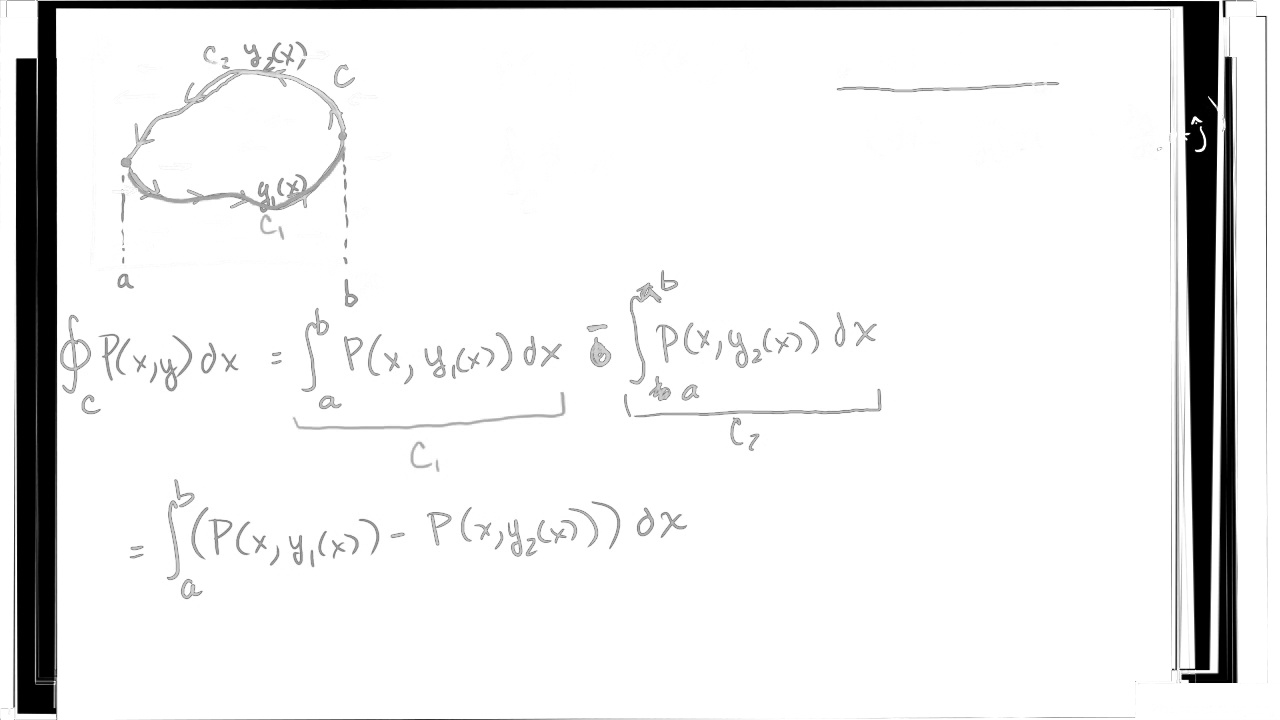 C₂ y₂(x) C
y₁(x)
C₁
a b
∮_C P(x,y) dx = ∫_a^b P(x, y₁(x)) dx - ∫_a^b P(x, y₂(x)) dx
C₁ C₂
= ∫_a^b (P(x, y₁(x)) - P(x, y₂(x))) dx
ĵ